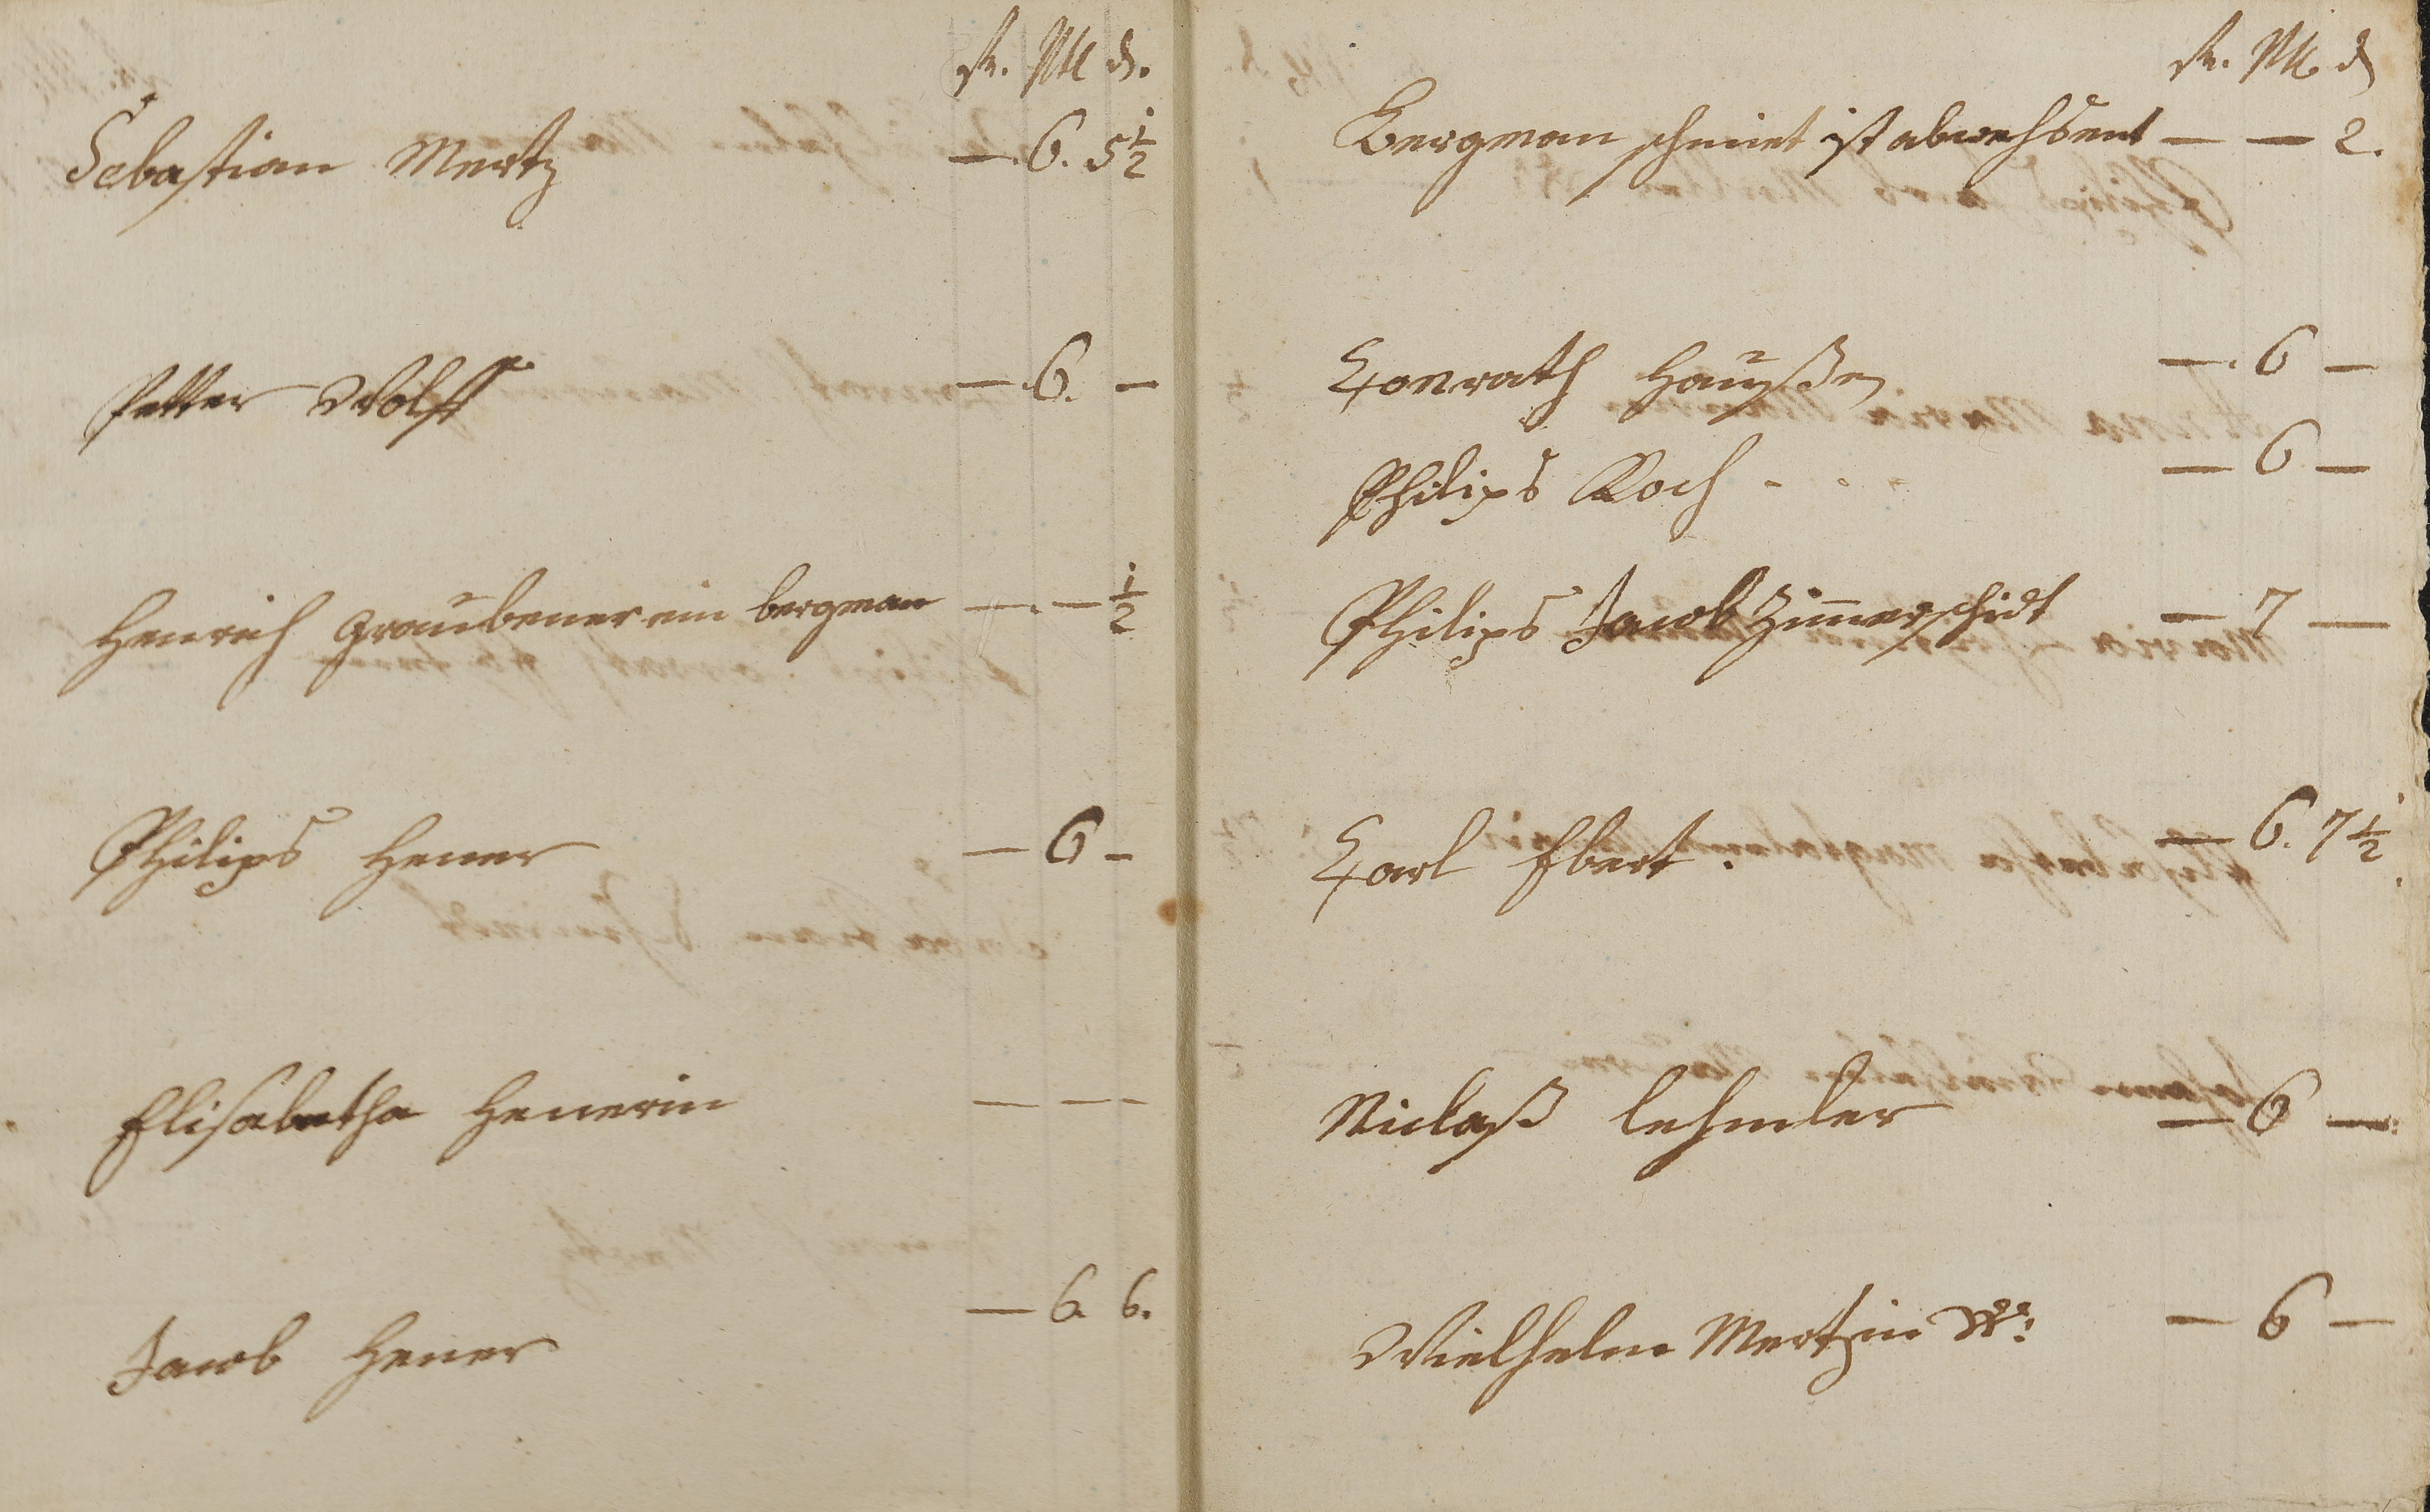 fl. Alb d.
Sebastian Mertz — 6. 5 1/2
Petter Wolff — 6. —
Henrich Graubener ein bergman — — 1/2
Philips Hener — 6 —
Elisabetha Henerin — — —
Jacob Hener — 6. 6.
fl. Alb. d
Bergman schmit ist abwehsent — — 2.
Conrath Haußen — 6 —
Philips Koch — 6 —
Philips Jacob Zimerschidt — 7 —
Carl Ebert. — 6. 7 1/2
Niclaß lehmler — 6 —
Wielhelm Mertzin — 6 —